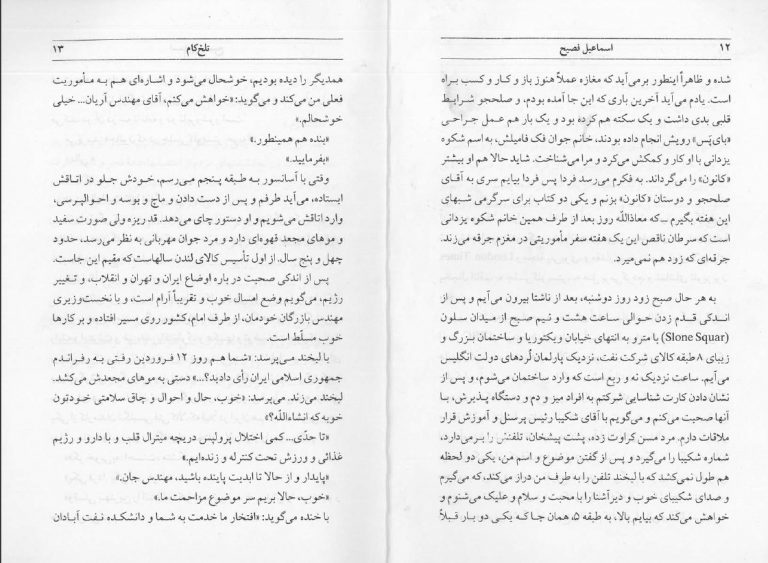 ۱۲ اسماعیل فصیح
شده و ظاهراً اینطور برمی‌آید که مغازه عملاً هنوز باز و کار و کسب براه
است. یادم می‌آید آخرین باری که این جا آمده بودم، و صلحجو شرایط
قلبی بدی داشت و یک سکته هم کرده بود و یک بار هم عمل جراحی
«بای‌پَس» رویش انجام داده بودند، خانم جوان فک فامیلش، به اسم شکوه
یزدانی با او کار و کمکش می‌کرد و مرا می‌شناخت. شاید حالا هم او بیشتر
«کانون» را می‌گرداند. به فکرم می‌رسد فردا پس فردا بیایم سری به آقای
صلحجو و دوستان «کانون» بزنم و یکی دو کتاب برای سرگرمی شبهای
این هفته بگیرم ــ که معاذاللّه روز بعد از طرف همین خانم شکوه یزدانی
است که سرطان ناقص این یک هفته سفر مأموریتی در مغزم جرقه می‌زند.
جرقه‌ای که زود هم نمی‌میرد.
به هر حال صبح زود روز دوشنبه، بعد از ناشتا بیرون می‌آیم و پس از
اندکی قدم زدن حوالی ساعت هشت و نیم صبح از میدان سلون
(Slone Squar) با مترو به انتهای خیابان ویکتوریا و ساختمان بزرگ و
زیبای ۸ طبقه کالای شرکت نفت، نزدیک پارلمان لُردهای دولت انگلیس
می‌آیم. ساعت نزدیک نه و ربع است که وارد ساختمان می‌شوم، و پس از
نشان دادن کارت شناسایی شرکتم به افراد میز و دم و دستگاه پذیرش، با
آنها صحبت می‌کنم و می‌گویم با آقای شکیبا رئیس پرسنل و آموزش قرار
ملاقات دارم. مرد مسن کراوت زده، پشت پیشخان، تلفنش را برمی‌دارد،
شماره شکیبا را می‌گیرد و پس از گفتن موضوع و اسم من، یکی دو لحظه
هم طول نمی‌کشد که با لبخند تلفن را به طرف من دراز می‌کند، که می‌گیرم
و صدای شکیبای خوب و دیرآشنا را با محبت و سلام و علیک می‌شنوم و
خواهش می‌کند که بیایم بالا، به طبقه ۵، همان جا که یکی دو بار قبلاً
تلخ‌کام ۱۳
همدیگر را دیده بودیم، خوشحال می‌شود و اشاره‌ای هم به مأموریت
فعلی من می‌کند و می‌گوید: «خواهش می‌کنم، آقای مهندس آریان... خیلی
خوشحالم.»
«بنده هم همینطور.»
«بفرمایید.»
وقتی با آسانسور به طبقه پنجم می‌رسم، خودش جلو در اتاقش
ایستاده، می‌آید طرفم و پس از دست دادن و ماچ و بوسه و احوالپرسی،
وارد اتاقش می‌شویم و او دستور چای می‌دهد. قد ریزه ولی صورت سفید
و موهای مجعد قهوه‌ای دارد و مرد جوان مهربانی به نظر می‌رسد، حدود
چهل و پنج سال. از اول تأسیس کالای لندن سالهاست که مقیم این جاست.
پس از اندکی صحبت در باره اوضاع ایران و تهران و انقلاب، و تغییر
رژیم، می‌گویم وضع امسال خوب و تقریباً آرام است، و با نخست‌وزیری
مهندس بازرگان خودمان، از طرف امام، کشور روی مسیر افتاده و بر کارها
خوب مسلّط است.
با لبخند می‌پرسد: «شما هم روز ۱۲ فروردین رفتی به رفراندم
جمهوری اسلامی ایران رأی دادید؟...» دستی به موهای مجعدش می‌کشد.
لبخند می‌زند. می‌پرسد: «خوب، حال و احوال و چاق سلامتی خودتون
خوبه که انشاءاللّه؟»
«تا حدّی... کمی اختلال پرولپس دریچه میترال قلب و با دارو و رژیم
غذائی و ورزش تحت کنترله و زنده‌ایم.»
«پایدار و از حالا تا ابدیت پاینده باشید، مهندس جان.»
«خوب، حالا بریم سر موضوع مزاحمت ما.»
با خنده می‌گوید: «افتخار ما خدمت به شما و دانشکده نفت آبادان